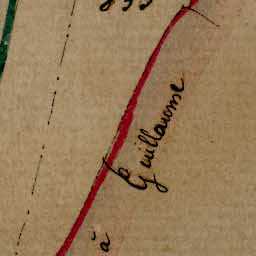 Guillaume
à